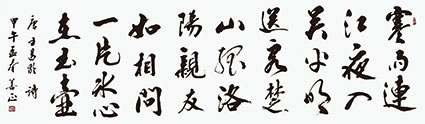 寒雨連
江夜入
吳平明
送客楚
山孤洛
陽親友
如相問
一片冰心
在玉壺
唐王昌齡詩
甲午孟